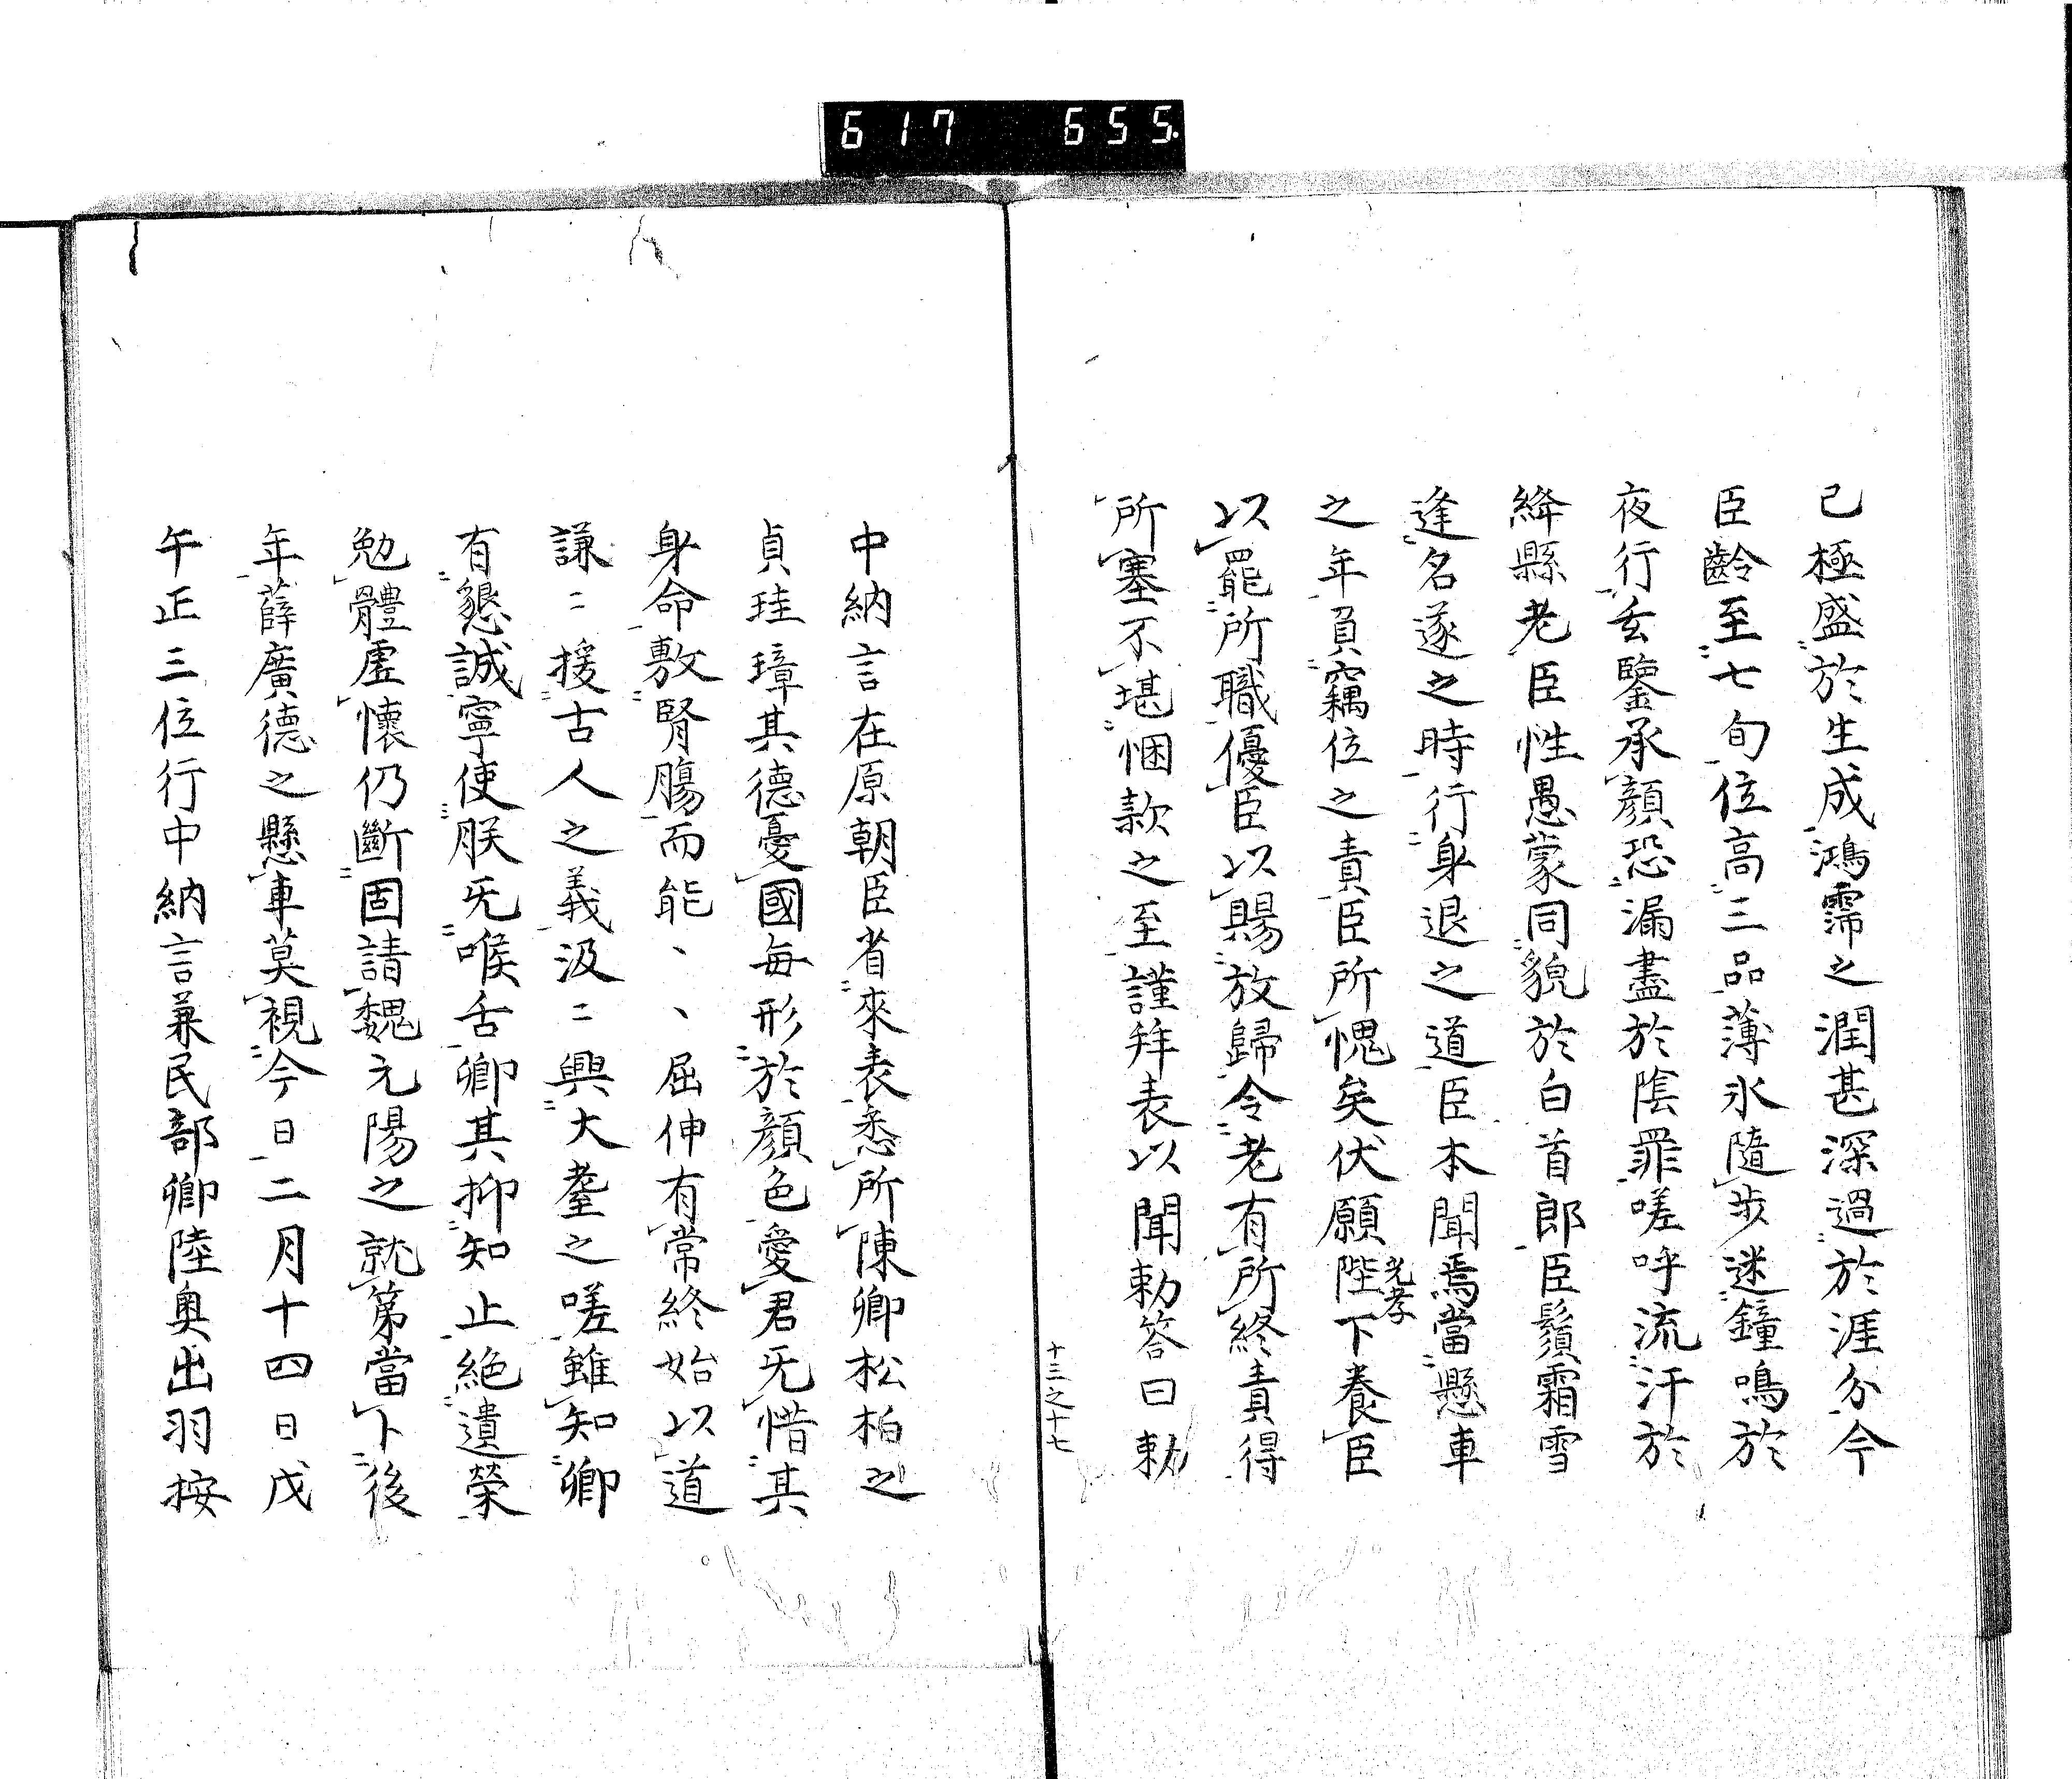 617 655.
已極盛於生成鴻霈之潤甚深過於涯分今
臣齡至七旬位高三品薄氷隨步迷鐘鳴於
夜行玄鑒承顏恐漏盡於陰罪嗟呼流汗於
絳縣老臣性愚蒙同貌於白首郎臣鬚霜雪
逢名遂之時行身退之道臣本聞焉當懸車
之年負竊位之責臣所愧矣伏願陛下養臣
光孝
以罷所職優臣以賜放歸令老有所終責得
所塞不堪悃款之至謹拜表以聞勅答曰勅
十三之十七
中納言在原朝臣省來表悉所陳卿松柏之
貞珪璋其德憂國每形於顏色愛君旡惜其
身命敷腎腸而能、、、屈伸有常終始以道
謙〻援古人之義汲〻興大耋之嗟雖知卿
有懇誠寧使朕旡喉舌卿其抑知止絕遺榮
勉體虛懷仍斷固請魏元陽之就第當下後
年薛廣德之懸車莫視今日二月十四日戊
午正三位行中納言兼民部卿陸奥出羽按